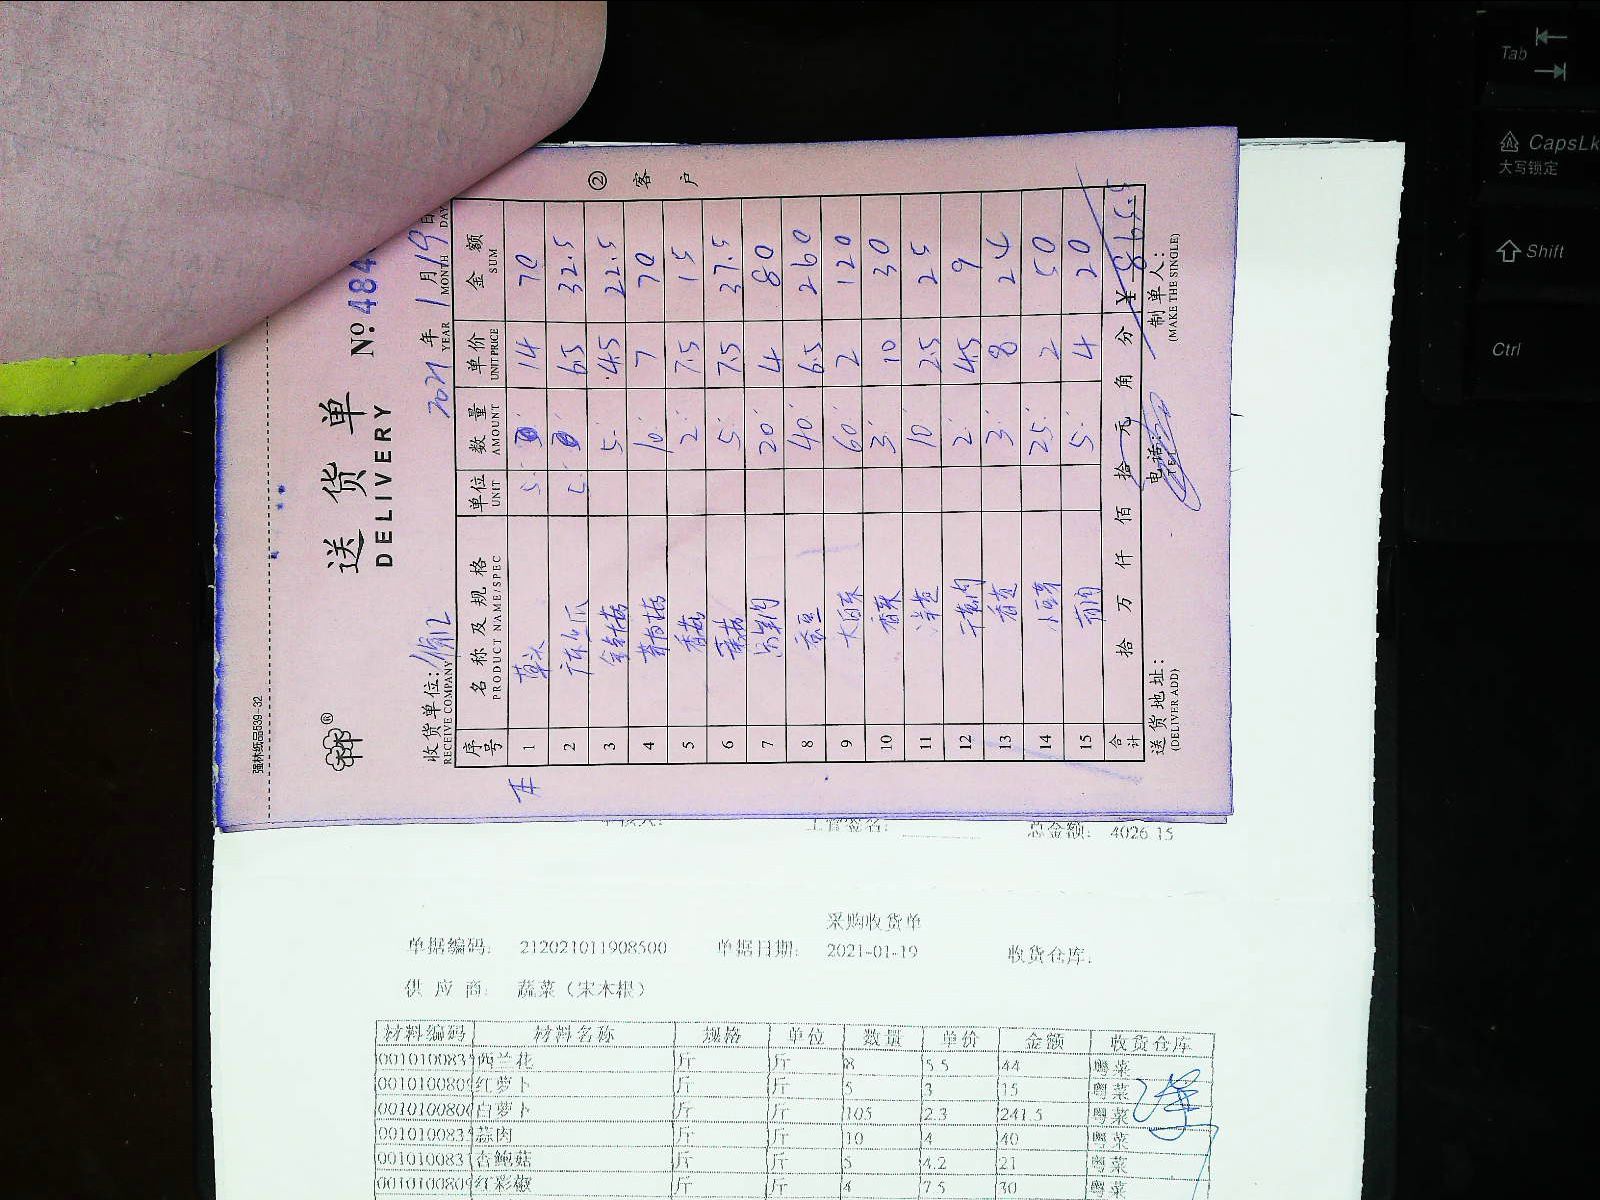 强林纸品539-32
送 货 单
DELIVERY
№ 484
收货单位:
RECEIVE COMPANY
2021 年 1 月 19 日
YEAR MONTH DAY
② 客 户
序号 名 称 及 规 格 单位 数 量 单 价 金 额
PRODUCT NAME/SPEC UNIT AMOUNT UNIT PRICE SUM
1 草头 5 14 70
2 5 6.5 32.5
3 金针菇 5 4.5 22.5
4 10 7 70
5 香菇 2 7.5 15
6 5 7.5 37.5
7 20 4 80
8 蚕豆 40 6.5 260
9 大白菜 60 2 120
10 香菜 3 10 30
11 洋葱 10 2.5 25
12 2 4.5 9
13 香葱 3 8 24
14 小豆芽 25 2 50
15 5 4 20
合计 拾 万 仟 佰 拾 元 角 分 ¥ 865.5
送货地址:
(DELIVER ADD)
电话:
TEL
制单人:
(MAKE THE SINGLE)
总金额: 4026.15
采购收货单
单据编码: 212021011908500 单据日期: 2021-01-19 收货仓库:
供 应 商: 蔬菜（宋木根）
材料编码 材料名称 规格 单位 数量 单价 金额 收货仓库
001010083 西兰花 斤 斤 8 5.5 44 粤菜
001010080 红萝卜 斤 斤 5 3 15 粤菜
001010080 白萝卜 斤 斤 105 2.3 241.5 粤菜
001010083 蒜肉 斤 斤 10 4 40 粤菜
001010083 杏鲍菇 斤 斤 5 4.2 21 粤菜
001010080 红彩椒 斤 斤 4 7.5 30 粤菜
Tab
CapsLk
大写锁定
Shift
Ctrl